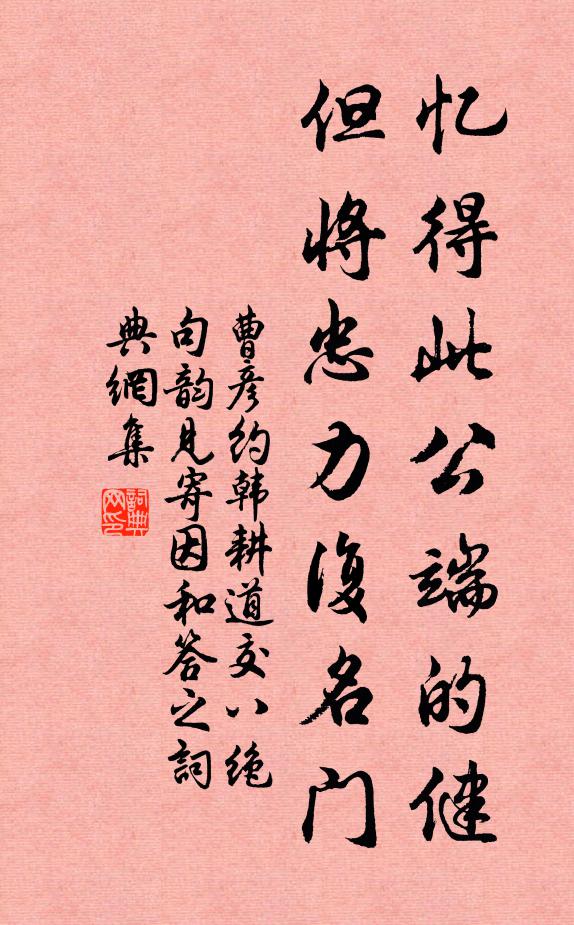 忆得此公端的健
但将忠力复名门
曹彦约韩耕道交八绝
句韵见寄因和答之词
典网集
詞典网印